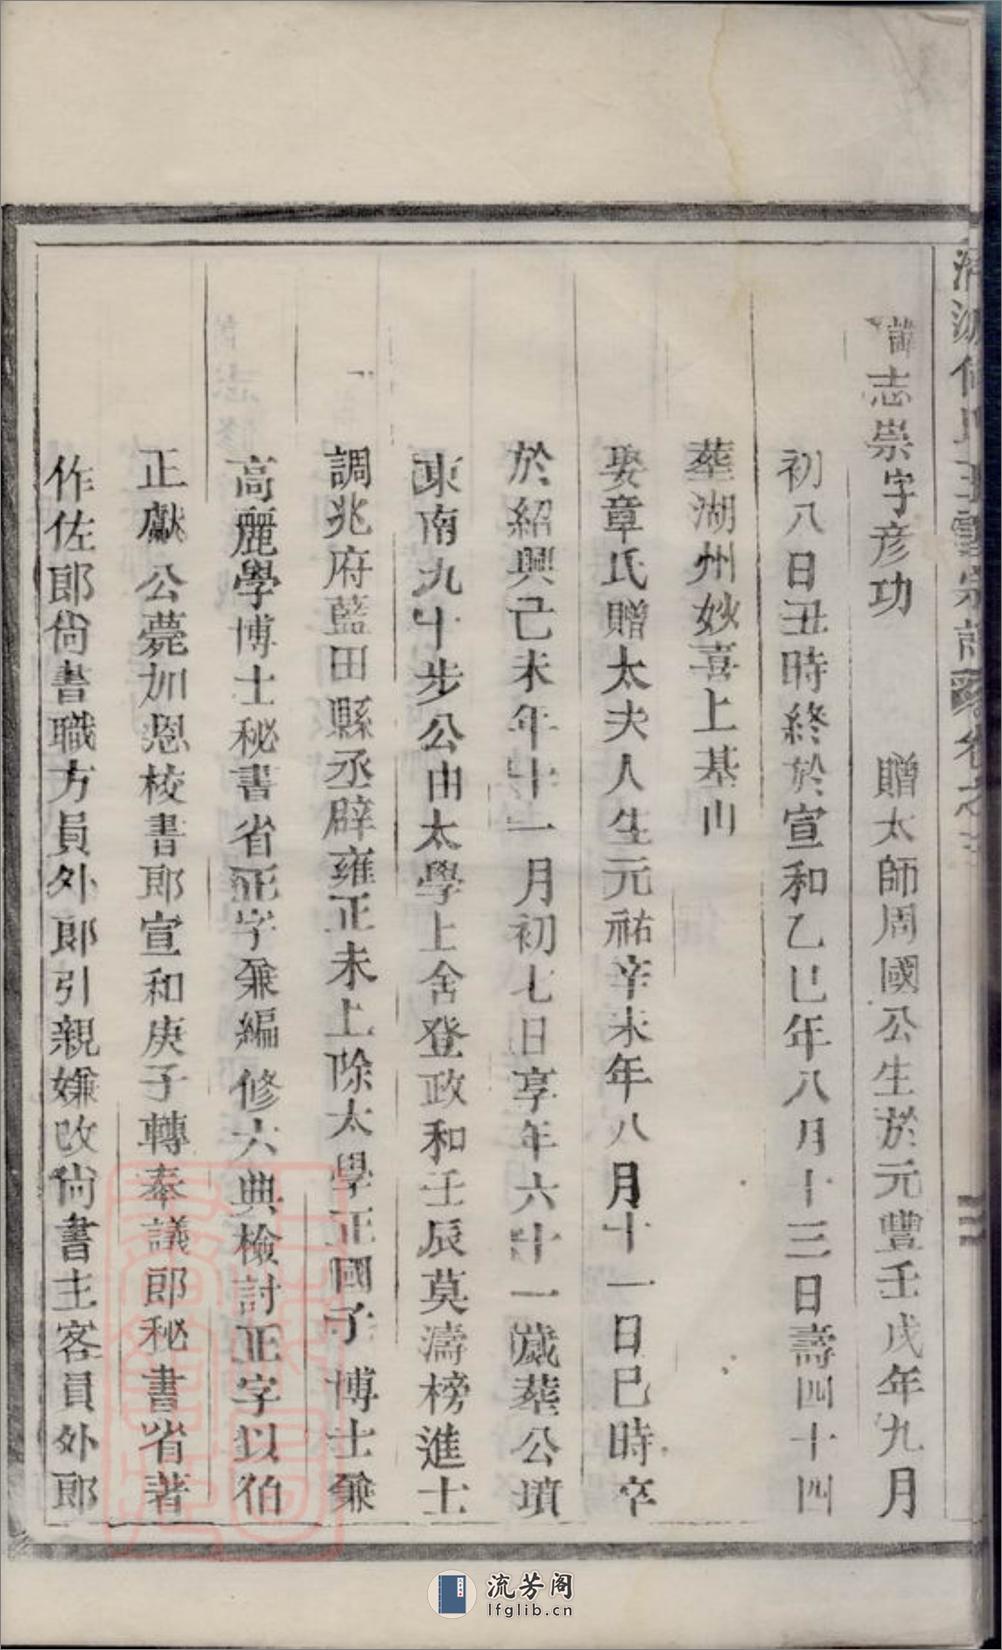 諱志崇字彥功　贈太師周國公生於元豐壬戌年九月
初八日丑時終於宣和乙巳年八月十三日壽四十四
葬湖州妙喜上基山
娶章氏贈太夫人生元祐辛未年八月十一日巳時卒
於紹興己未年十一月初七日享年六十一歲葬公墳
東南九十步公由太學上舍登政和壬辰莫濤榜進士
調兆府藍田縣丞辟雍正未上除太學正國子博士兼
高麗學博士秘書省正字兼編修六典檢討正字以伯
正獻公薨加恩校書郎宣和庚子轉奉議郎秘書省著
作佐郎尙書職方員外郎引親嫌改尙書主客員外郎
流芳阁
lfglib.cn